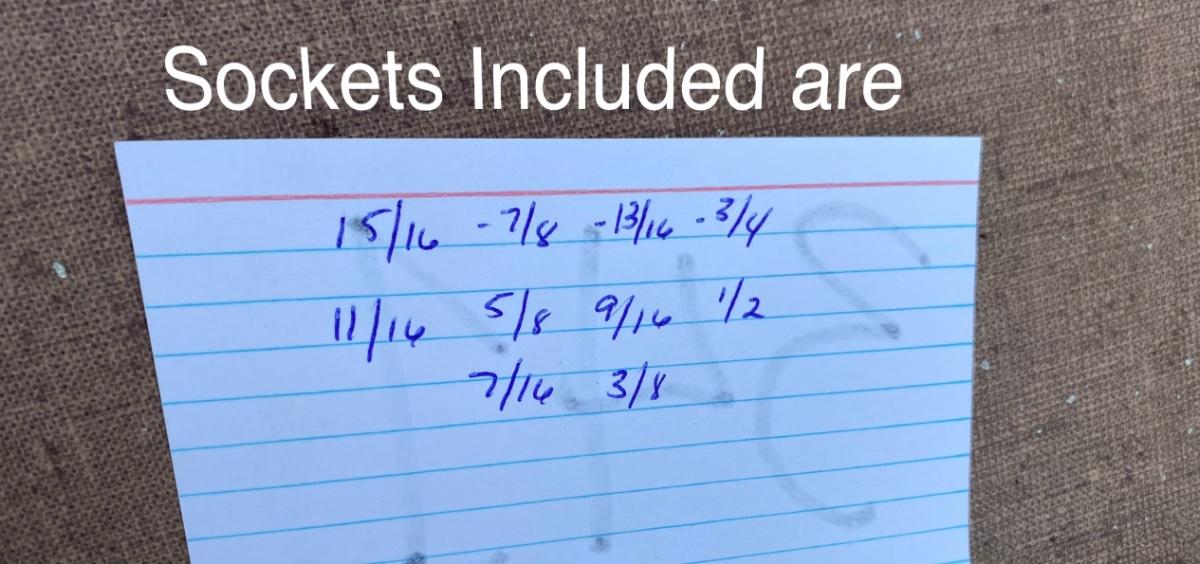 Sockets Included are
15/16 - 7/8 - 13/16 - 3/4
11/16 5/8 9/16 1/2
7/16 3/8